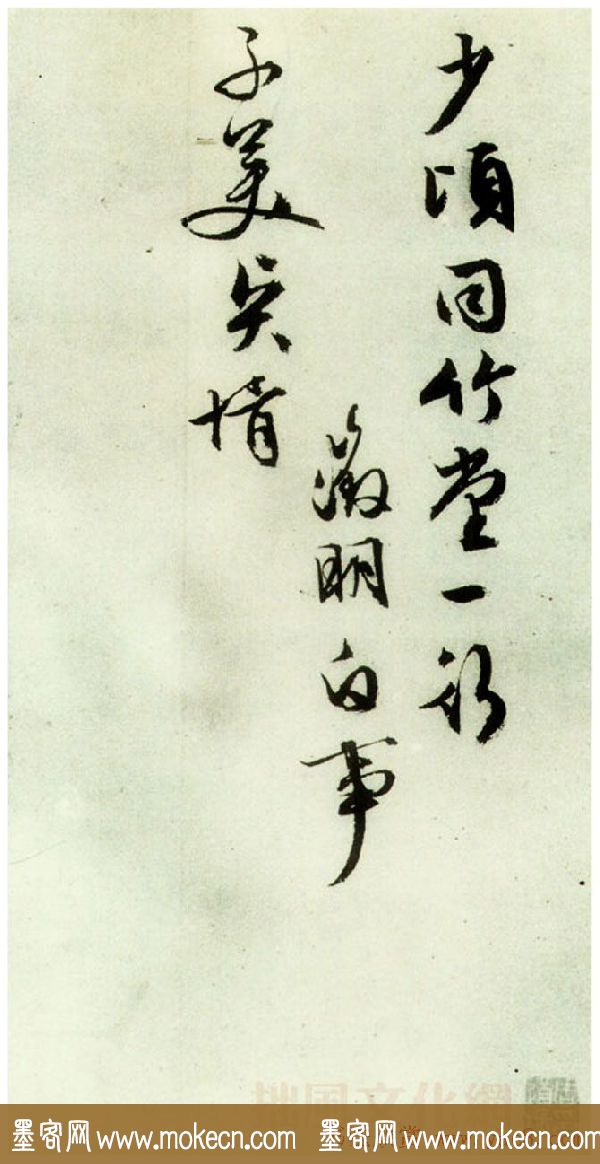 少頃同竹堂一行
徵明白事
子美賢壻
拙風文化網
墨客网 www.mokecn.com 墨客网 www.mokecn.com